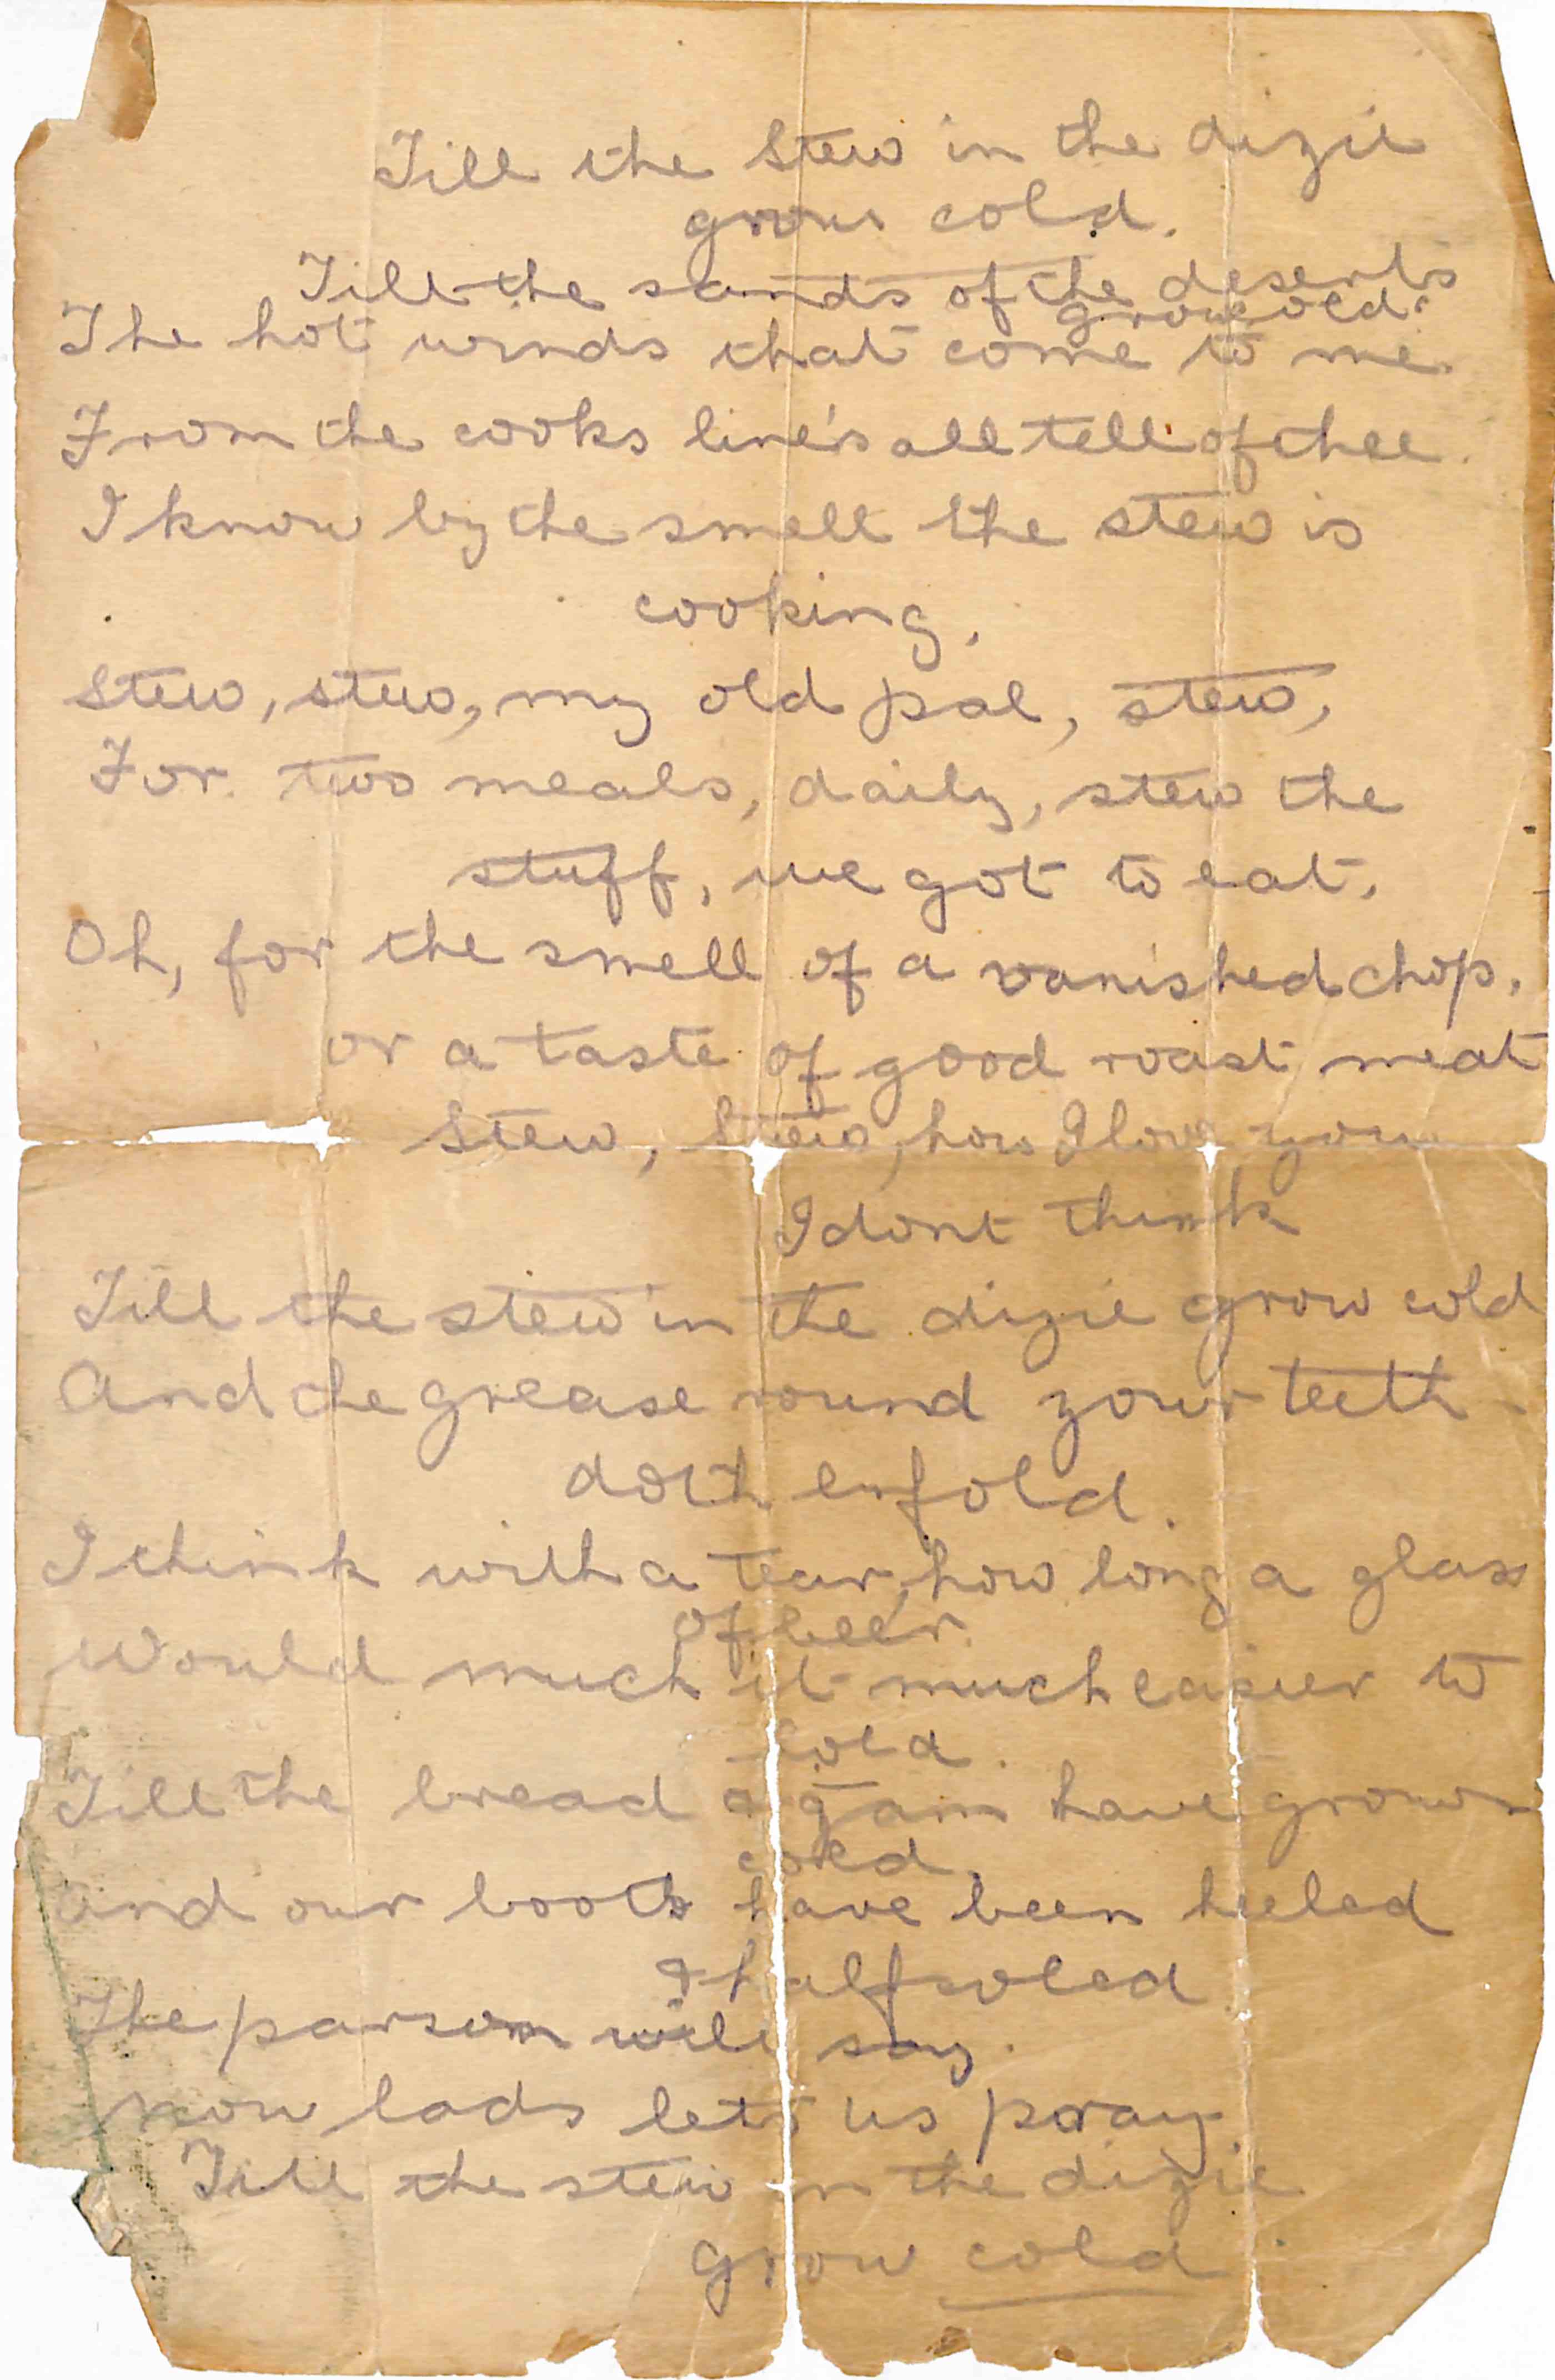 Till the Stew in the dizie
grows cold.
Till the sands of the deserts
grow cold.
The hot winds that come to me
From the cooks line's all tell of thee.
I know by the smell the stew is
cooking.
Stew, stew, my old pal, stew,
For two meals, daily, stew the
stuff, we got to eat.
Oh, for the smell of a vanished chop.
or a taste of good roast meat
Stew, Stew, how I love you
I dont think
Till the stew in the dizie grow cold
And the grease round your teeth
doth enfold.
I think with a tear, how long a glass
of beer.
Would much it much easier to
hold.
Till the bread & jam have grown
cold.
and our boots have been heeled
& half soled
The parson will say.
now lads let us pray.
Till the stew in the dizie
grow cold